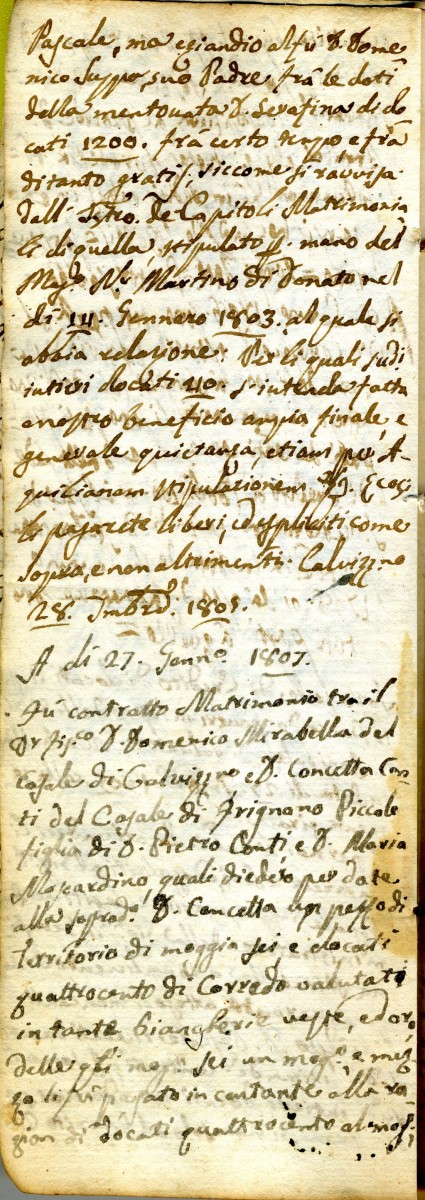 Pascale, ma eziandio al fù D. Dome
nico suo Padre frà le doti
della mentovata D. Serafina di do
cati 1200. frà certo tempo, e frà
ditanto gratis, siccome si ravvisa
dall' de Capitoli Matrimonia
li di quella, stipulato p. mano del
Mag.co N.r Martino di Donato nel
dì 14. Gennaro 1803. al quale si
abbia relazione. Per li quali sud.i
intieri docati 40. s'intenda fatta
a nostro beneficio ampia finale, e
generale quietanza, etiam per A-
quilianam stipulationem Ecosì
li pagarete liberi, ed espliciti come
sopra, e non altrimenti. Calvizzno
28. 1805.
A di 27. Genn.o 1807.
Fù contratto Matrimonio tra il
Dr Fis.co D. Domenico Mirabella del
Casale di Calvizzno e D. Concetta Con
ti del Casale di Frignano Piccolo
figlia di D. Pietro Conti e D. Maria
Moscardino, quali diedero per dote
alla soprad.a D. Concetta un pezzo di
Territorio di moggia sei e docati
quattrocento di Corredo valutati
in tante biangherie veste, ed oro,
delle qli mog. sei un mog.o e mez
zo li fù pagato in contante alla ra
gion di docati quattrocento al mog.